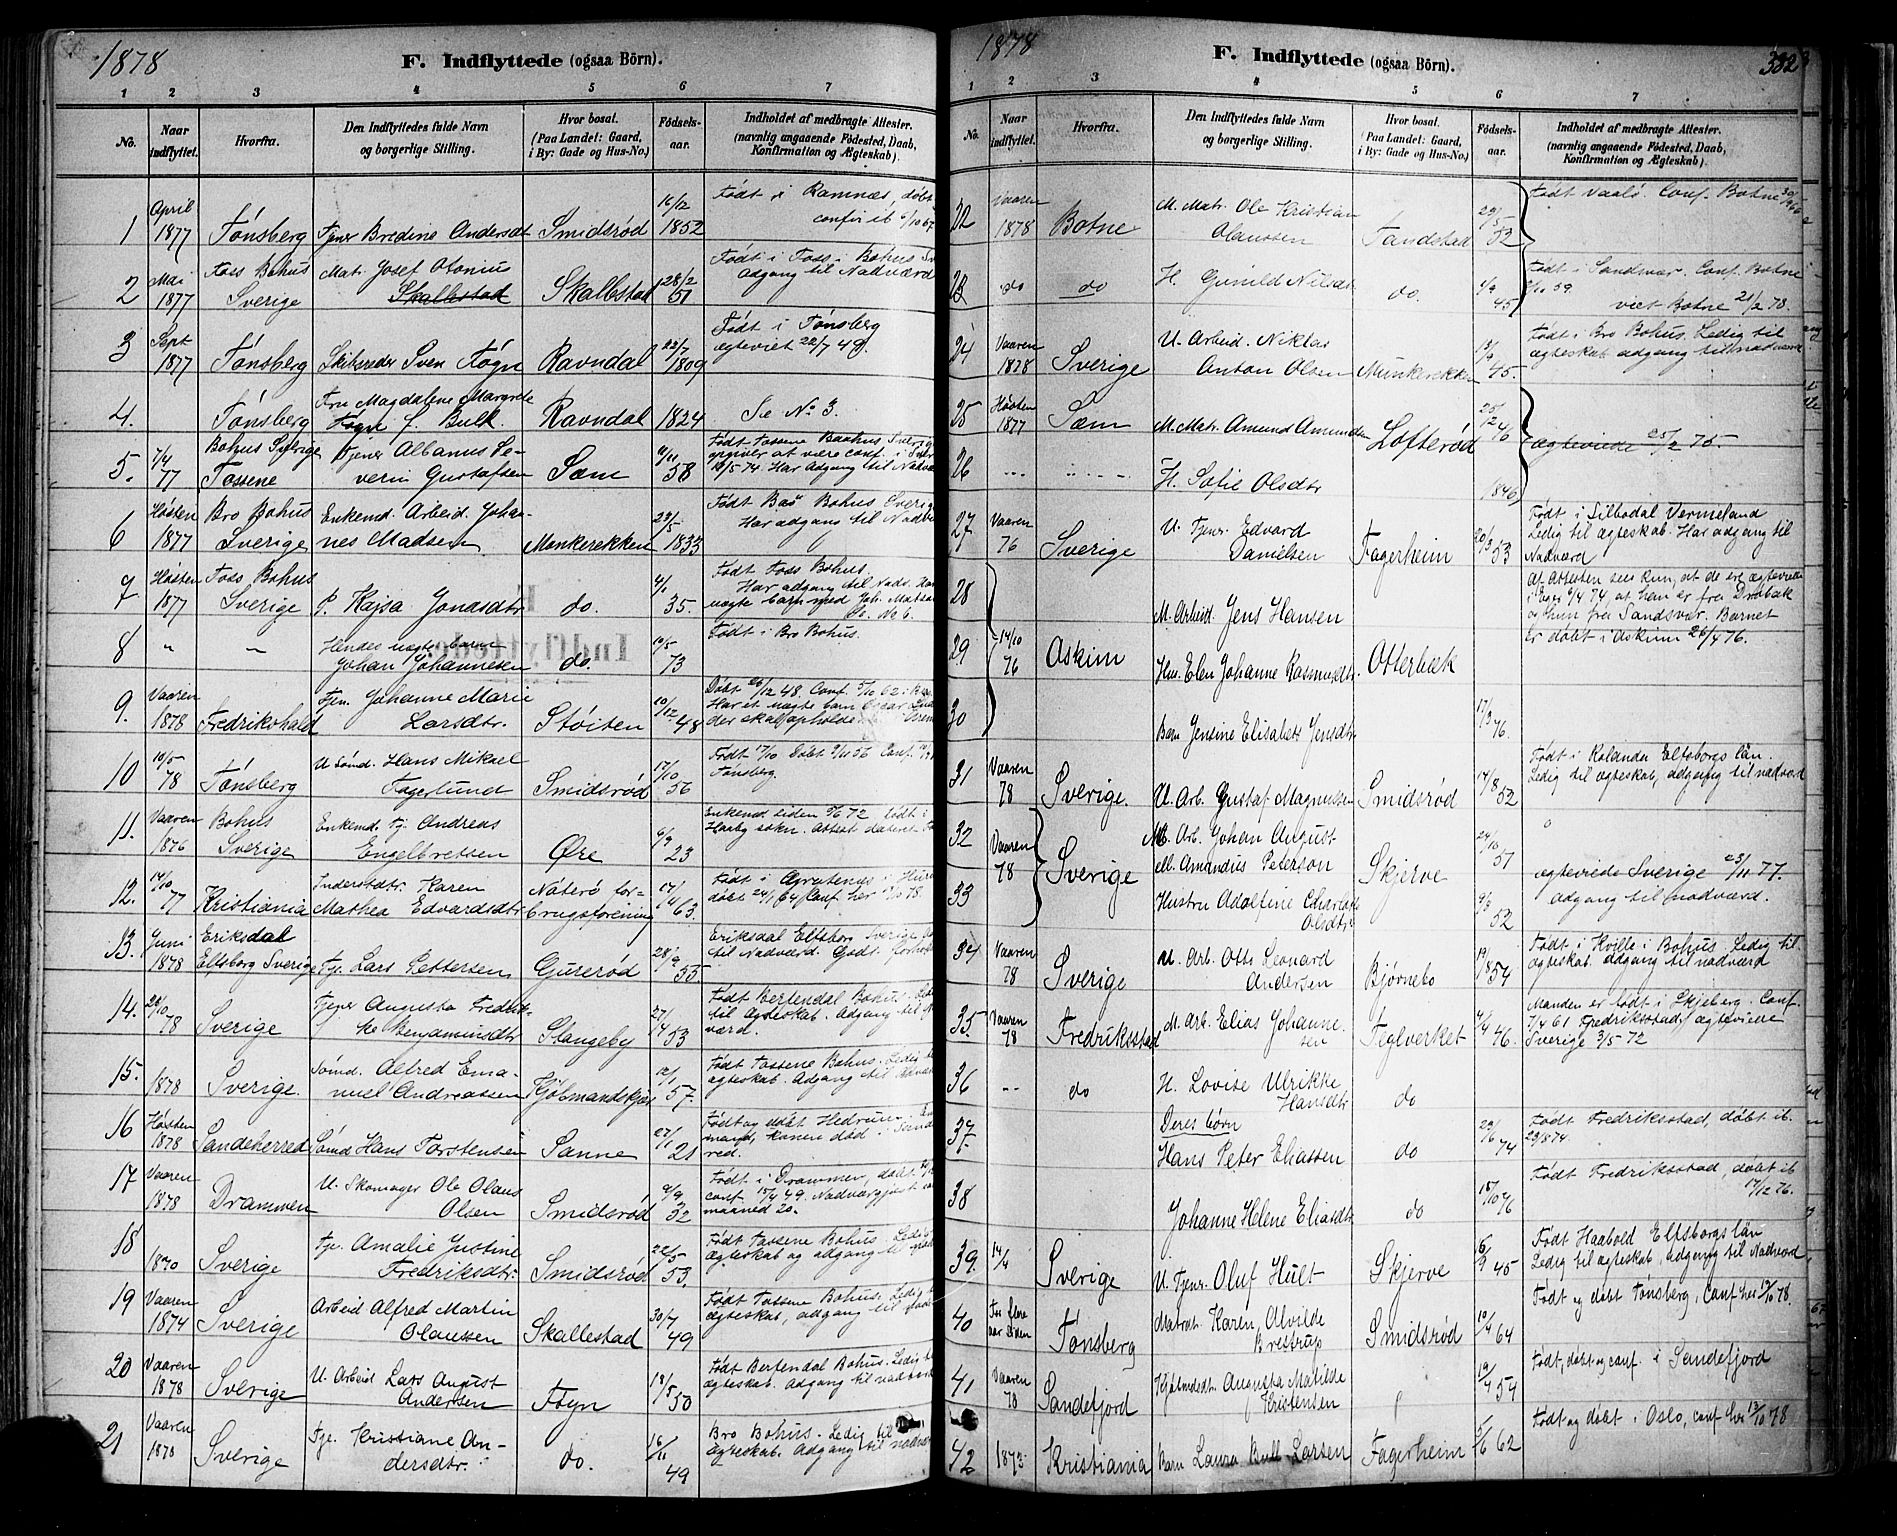 1878
F. Indflyttede (ogsaa Börn).
1 2 3 4 5 6 7
No. Naar indflyttet. Hvorfra. Den Indflyttedes fulde Navn og borgerlige Stilling. Hvor bosat. (Paa Landet: Gaard, i By: Gade og Hus-No.) Fødsels-aar. Indholdet af medbragte Attester. (navnlig angaaende Fødested, Daab, Konfirmation og Ægteskab).
1 April 1877 Tønsberg Tjener Bredine Andersdt Smidsrød 16/12 1852 Født i Ramnæs, døbt
confir ib 6/10 67
2 Mai 1877 Foss Bohus Sverige Mat. Josef Otonius Skallestad Skallestad 28/2 51 Født i Foss i Bohus
adgang til Nadværd
3 Sept 1877 Tønsberg Skibsreder Sven Føyn Ravndal 1809 Født i Tønsberg
ægteviet 22/7 49.
4. Tønsberg Fru Magdalene Margrete Føyn f. Bull Ravndal 1824 Se No 3.
5. 7/4 77 Bohus Sverige Tossene Tjener Albanus Severin Gustafsen Sæm 9/11 58 Født Tossene Bohus
opgiver at være conf. i
19/5 74 Har adgang til
6 Høsten 1877 Bro Bohus Sverige Enkemd. Arbeid. Johannes Madsen Munkerekken 29/5 1833 Født Bohus
Har adgang til Nadv
7 Høsten 1877 Foss Bohus Sverige P. Kajsa Jonasdtr do. 4/1 35. Født Foss Bohus.
Har adgang til Nadv.
uægte barn med Joh.
No 6.
8 " " Hendes uægte barn Johan Johannesen do. 10/5 73 Født i Bro Bohus.
9. Vaaren 1878 Fredrikshald Tjen. Johanne Marie Larsdtr. Støiten 10/12 48 Døbt 26/12 48. Conf. 5/10 62 i
Har et uægte barn
10 10/5 78 Tønsberg U Sømd. Hans Mikael Fagerlund Smidsrød 17/10 56 Født 17/10 Døbt 9/11 56 Conf.
Tønsberg.
11. Vaaren 1876 Bohus Sverige Enkemd. Tj. Andreas Engelbretsen Øre 6/9 23 Enkemd. siden 72, født i
Haaby sokn. Attest dateret
12. 14/10 77 Kristiania Inderstdtr. Karen Mathea Edvardsdtr Nøterø forbrugsforening 17/1 63. Født i
døbt 24/1 64 Conf her 13/10 78.
13. Juni 1878 Eriksdal Elfsborg Sverige Tje. Lars Pettersen Gurerød 28/9 55. Eriksdal Elfsborg Sverige
til Nadværd. Godt forhold
14. 28/10 78 Sverige Tjener Augusta Fredrikke Benjaminsdtr Slangeby 27/4 53 Født Bertendal Bohus.
til ægteskab. Adgang til
værd.
15. 1878 Sverige. Sømd. Alfred Emanuel Andreassen Kjøbmandskjær 12/1 57. Født Tossene Bohus. Ledig
ægteskab. Adgang til
16 Høsten 1878 Sandeherred Sømd Hans Torstensen Sanne 27/1 21 Født og døbt Hedrum.
mand, konen død i
red.
17 Vaaren 1878 Drammen U. Skomager Ole Olaus Olsen Smidsrød 9/9 32 Født i Drammen, døbt
conf. 15/4 49. Nadværgjæst
maaned 20.
18 1870 Sverige Tje. Amalie Justine Fredriksdtr. Smidsrød 22/5 53. Født Tossene Bohus. Ledig
ægteskab og adgang til
19 Vaaren 1874 Sverige Arbeid Alfred Martin Olaussen Skallestad 30/7 49 Født Tossene Bohus. Ledig
ægteskab, adgang til
20 Vaaren 1878 Sverige U. Arbeid Lars August Andersen Føyn 18/5 50 Født Bertendal Bohus. Ledig
ægteskab. Adgang til nadværd
21 Vaaren 1878 Sverige Tje. Kristiane Andersdtr. do. 16/11 49 Bro Bohus. Ledig til
ægteskab. Adgang til nadværd
1878
F. Indflyttede (ogsaa Börn).
382
1 2 3 4 5 6 7
No. Naar indflyttet. Hvorfra. Den Indflyttedes fulde Navn og borgerlige Stilling. Hvor bosat. (Paa Landet: Gaard, i By: Gade og Hus-No.) Fødsels-aar. Indholdet af medbragte Attester. (navnlig angaaende Fødested, Daab, Konfirmation og Ægteskab).
22 Vaaren 1878 Botne M. Matr. Ole Kristian Olaussen Tandstad 29/5 52 Født Vaale. Conf. Botne
23 do do H. Gunild Nilsdt do. 4/9 45 Født i Sandsvær. Conf. Botne
59. viet Botne 21/2 78.
24 Vaaren 1878 Sverige U. Arbeid. Niklas Anton Olsen Munkerekken 45. Født i Bro Bohus. Ledig til
ægteskab adgang til nadværd
25 Høsten 1877 Sæm M. Matr. Amund Amundsen Lofterød 25/12 46 ægteviede 25/2 75.
26 H. Sofie Olsdtr 1846
27 Vaaren 76 Sverige U. Tjenr. Edvard Danielsen Fagerheim 20/3 53 Født i Silbodal Vermeland
Ledig til ægteskab. Har adgang til
Nadværd
28 M. Arbeid. Jens Hansen Af Attesten sees kun, at de ere ægteviede
6/4 74 at han er fra Drøbak
og hun fra Sandsvær. Barnet
er døbt i Askim 26/4 76.
29 14/10 76 Askim Hus. Elen Johanne Rasmusdtr. Otterbæk
30 Barn Jensine Elisabets Jensdtr 17/3 76.
31 Vaaren 78 Sverige. U. Arb. Gustaf Magnussen Smidsrød 14/8 52 Født i Rolanda Elfsborgs län.
Ledig til ægteskab, adgang til nadværd
32 Vaaren 78 Sverige M. Arb. Johan August
Amandus Peterson Skjerve 24/10 51 ægteviede Sverige 23/11 77.
33 Hustru Adolfine Charlotte Olsdtr 9/9 52 adgang til nadværd.
34 Vaaren 78 Sverige M. Arb. Otto Leonard Andersen Bjørnebo 19/8 54 Født i Kville i Bohus. Ledig til
ægteskab. adgang til nadværd
35. Vaaren 78 Fredriksstad M. Arb. Elias Johannesen Teglverket 4/4 46. Manden er født i Skjeberg. Conf.
7/4 61 Fredriksstad, ægteviede
Sverige 3/5 72
36 do H. Lovise Ulrikke Hansdtr do
37. Deres børn
Hans Peter Eliassen do 29/6 74 Født Fredriksstad, døbt ib.
23/8 74.
38 Johanne Helene Eliasdtr do 15/10 76 Født Fredriksstad, døbt ib
17/12 76.
39. 14/4 Sverige U. Tjenr. Oluf Hult Skjerve 6/9 45 Født Haabold Elfsborgs län
Ledig til ægteskab, adgang til Nadværd
40 siden Tønsberg Matrdtr. Karen Alvilde Brestrup Smidsrød 10/4 64 Født og døbt Tønsberg, Conf her 13/10 78.
41 Vaaren 78 Sandefjord Augusta Matilde Kristensen 19/4 54 Født, døbt og conf. i Sandefjord
42 1873 Kristiania Barn Laura Bull Larsen Fagerheim 5/6 62 Født og døbt i Oslo, conf her 13/10 78